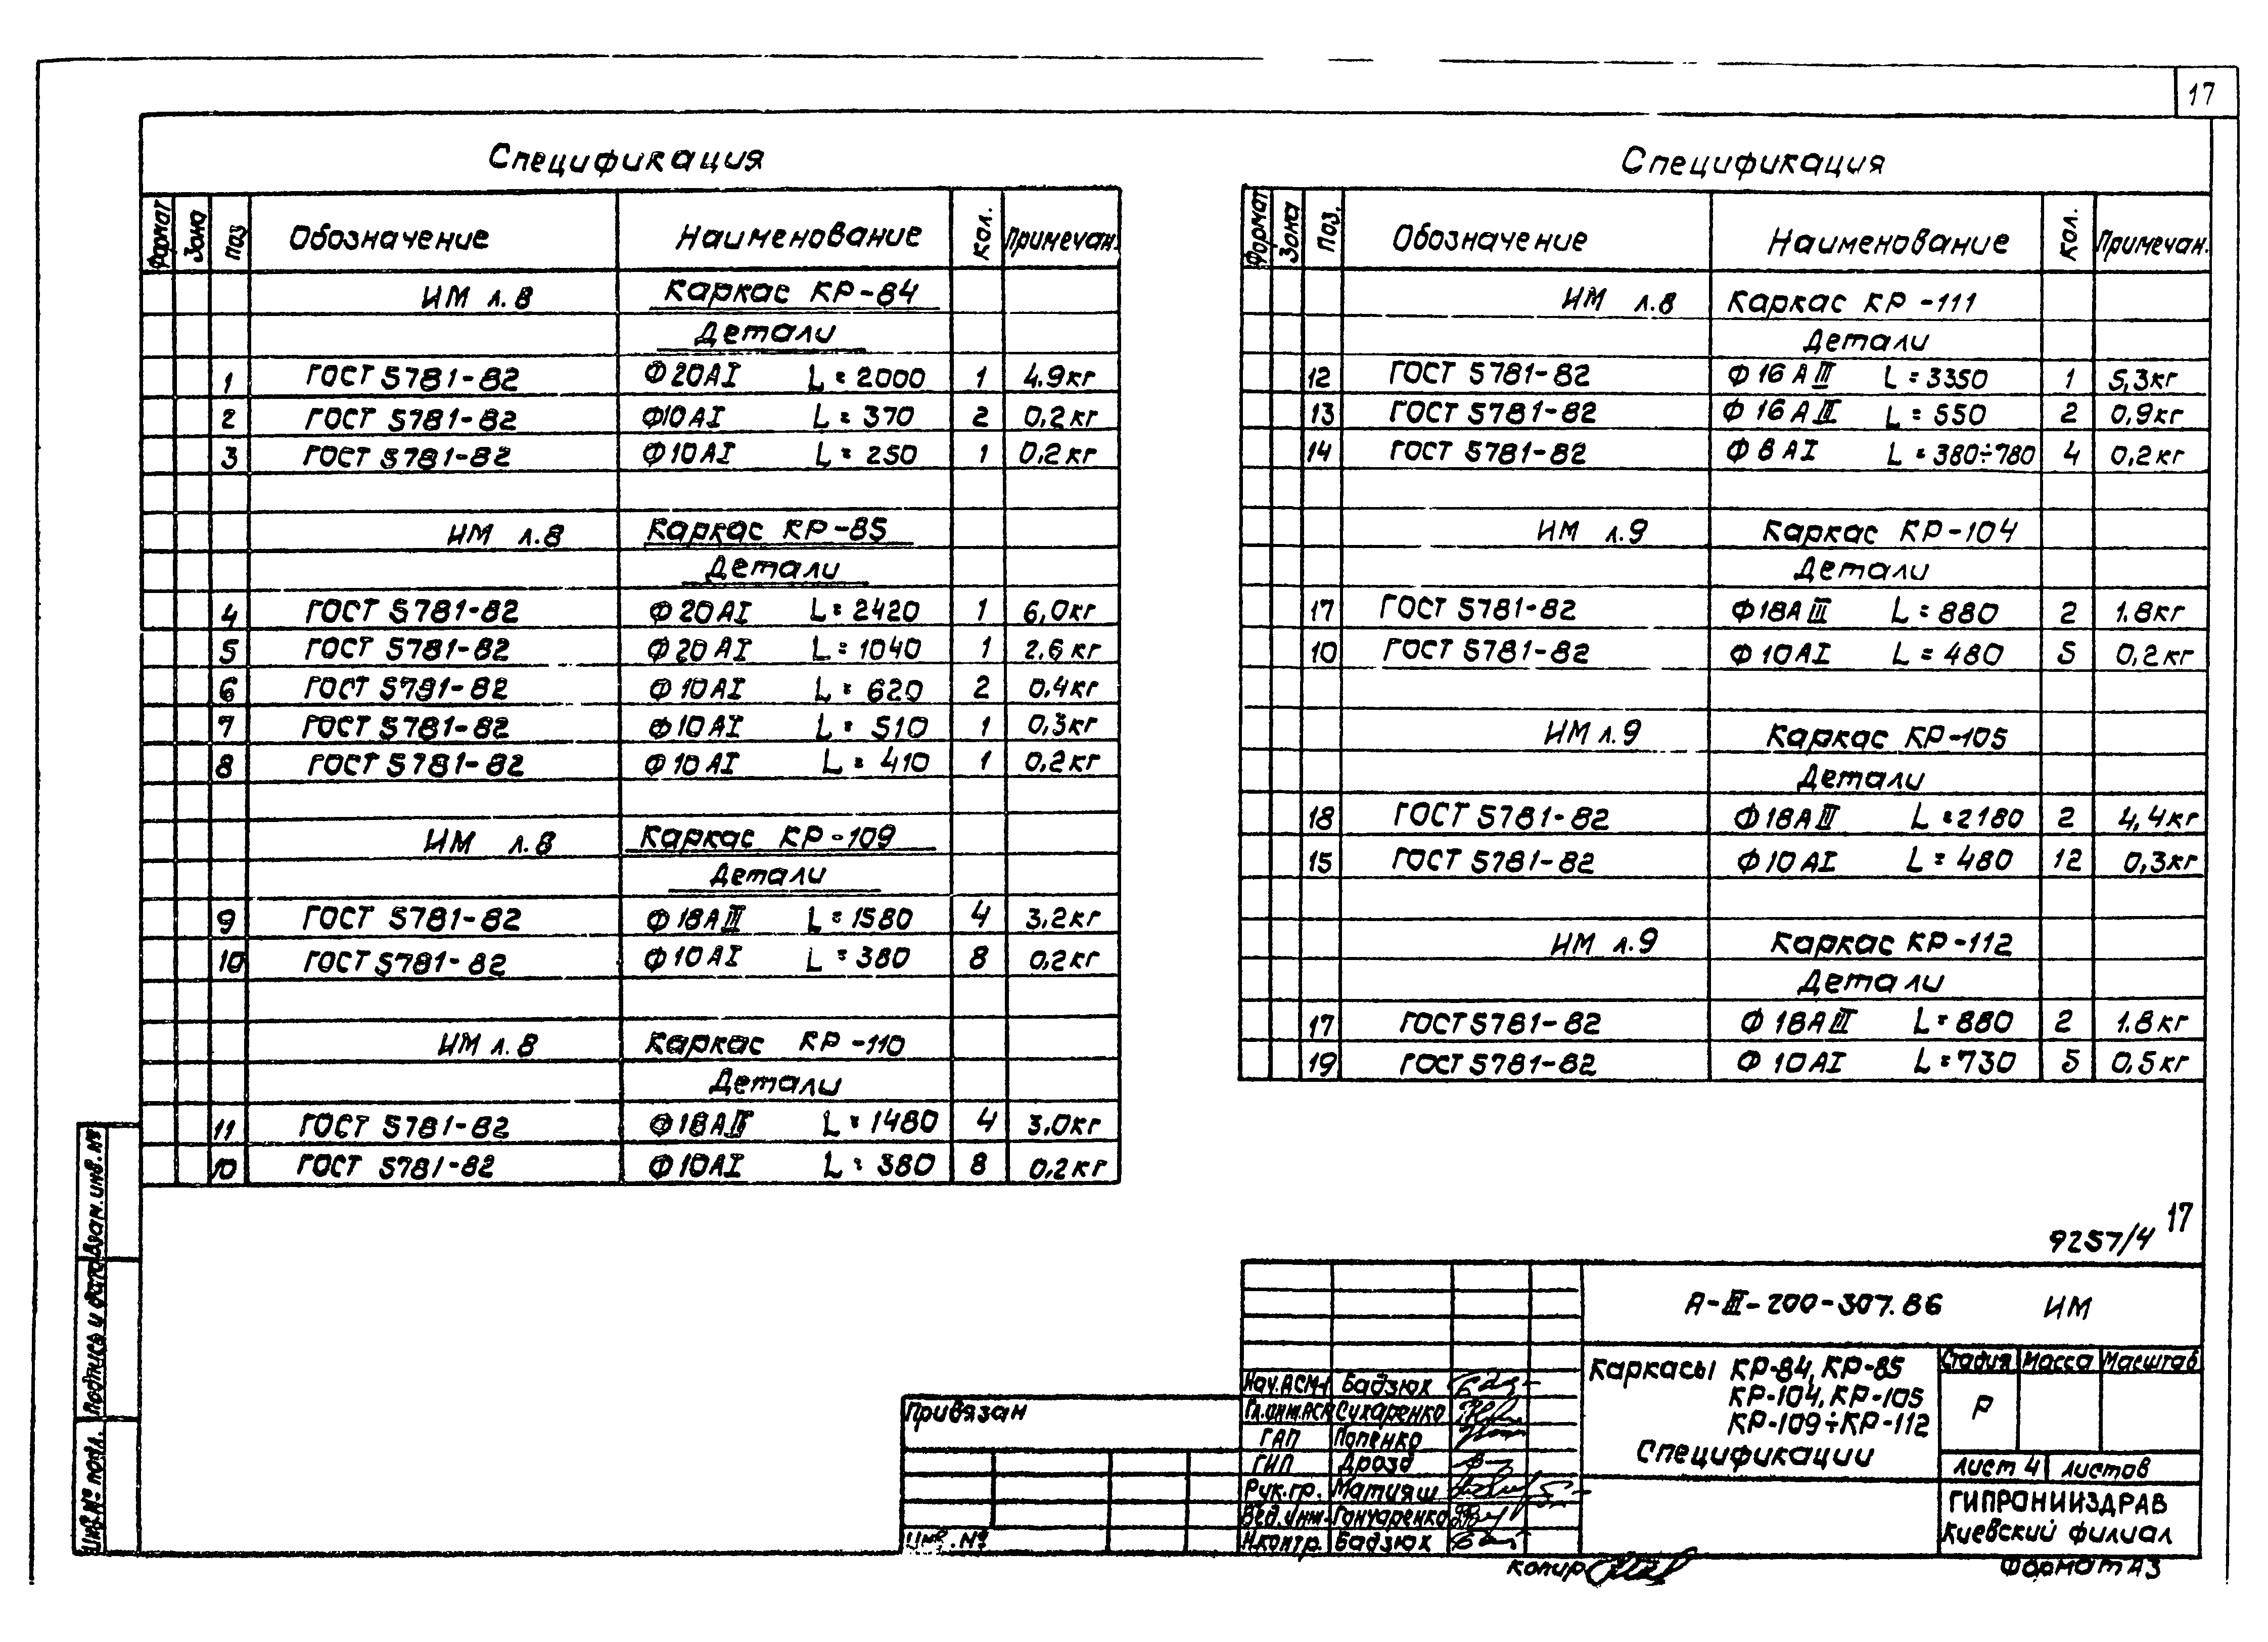 17
Спецификация
Формат Зона Поз Обозначение Наименование Кол. Примечан.
ИМ л.8 Каркас КР-84
Детали
1 ГОСТ 5781-82 Ф20АI L=2000 1 4.9кг
2 ГОСТ 5781-82 Ф10АI L=370 2 0,2кг
3 ГОСТ 5781-82 Ф10АI L=250 1 0,2кг
ИМ л.8 Каркас КР-85
Детали
4 ГОСТ 5781-82 Ф20АI L=2420 1 6,0кг
5 ГОСТ 5781-82 Ф20АI L=1040 1 2,6кг
6 ГОСТ 5791-82 Ф10АI L=620 2 0,4кг
7 ГОСТ 5781-82 Ф10АI L=510 1 0,3кг
8 ГОСТ 5781-82 Ф10АI L=410 1 0,2кг
ИМ л.8 Каркас КР-109
Детали
9 ГОСТ 5781-82 Ф18АIII L=1580 4 3,2кг
10 ГОСТ 5781-82 Ф10АI L=380 8 0,2кг
ИМ л.8 Каркас КР-110
Детали
11 ГОСТ 5781-82 Ф18АIII L=1480 4 3,0кг
10 ГОСТ 5781-82 Ф10АI L=380 8 0,2кг
Спецификация
Формат Зона Поз. Обозначение Наименование Кол. Примечан.
ИМ л.8 Каркас КР-111
Детали
12 ГОСТ 5781-82 Ф16АIII L=3350 1 5,3кг
13 ГОСТ 5781-82 Ф16АIII L=550 2 0,9кг
14 ГОСТ 5781-82 Ф8АI L=380÷780 4 0,2кг
ИМ л.9 Каркас КР-104
Детали
17 ГОСТ 5781-82 Ф18АIII L=880 2 1.8кг
10 ГОСТ 5781-82 Ф10АI L=480 5 0,2кг
ИМ л.9 Каркас КР-105
Детали
18 ГОСТ 5781-82 Ф18АIII L=2180 2 4,4кг
15 ГОСТ 5781-82 Ф10АI L=480 12 0,3кг
ИМ л.9 Каркас КР-112
Детали
17 ГОСТ 5781-82 Ф18АIII L=880 2 1.8кг
19 ГОСТ 5781-82 Ф10АI L=730 5 0,5кг
9257/4 17
А-III-200-307.86 ИМ
Каркасы КР-84, КР-85
КР-104, КР-105
КР-109÷КР-112
Спецификации
Стадия Масса Масштаб
Р
Лист 4 Листов
ГИПРОНИИЗДРАВ
Киевский филиал
Нач.АСМ-1 Бадзюх
Гл.инж.АСМ Сухаренко
ГАП Попенко
ГИП Дрозд
Рук.гр. Матияш
Вед.инж. Гончаренко
Н.контр. Бадзюх
Привязан
Инв.№
Взам.инв.№
Подпись и дата
Инв.№ подл.
Копир
Формат А3